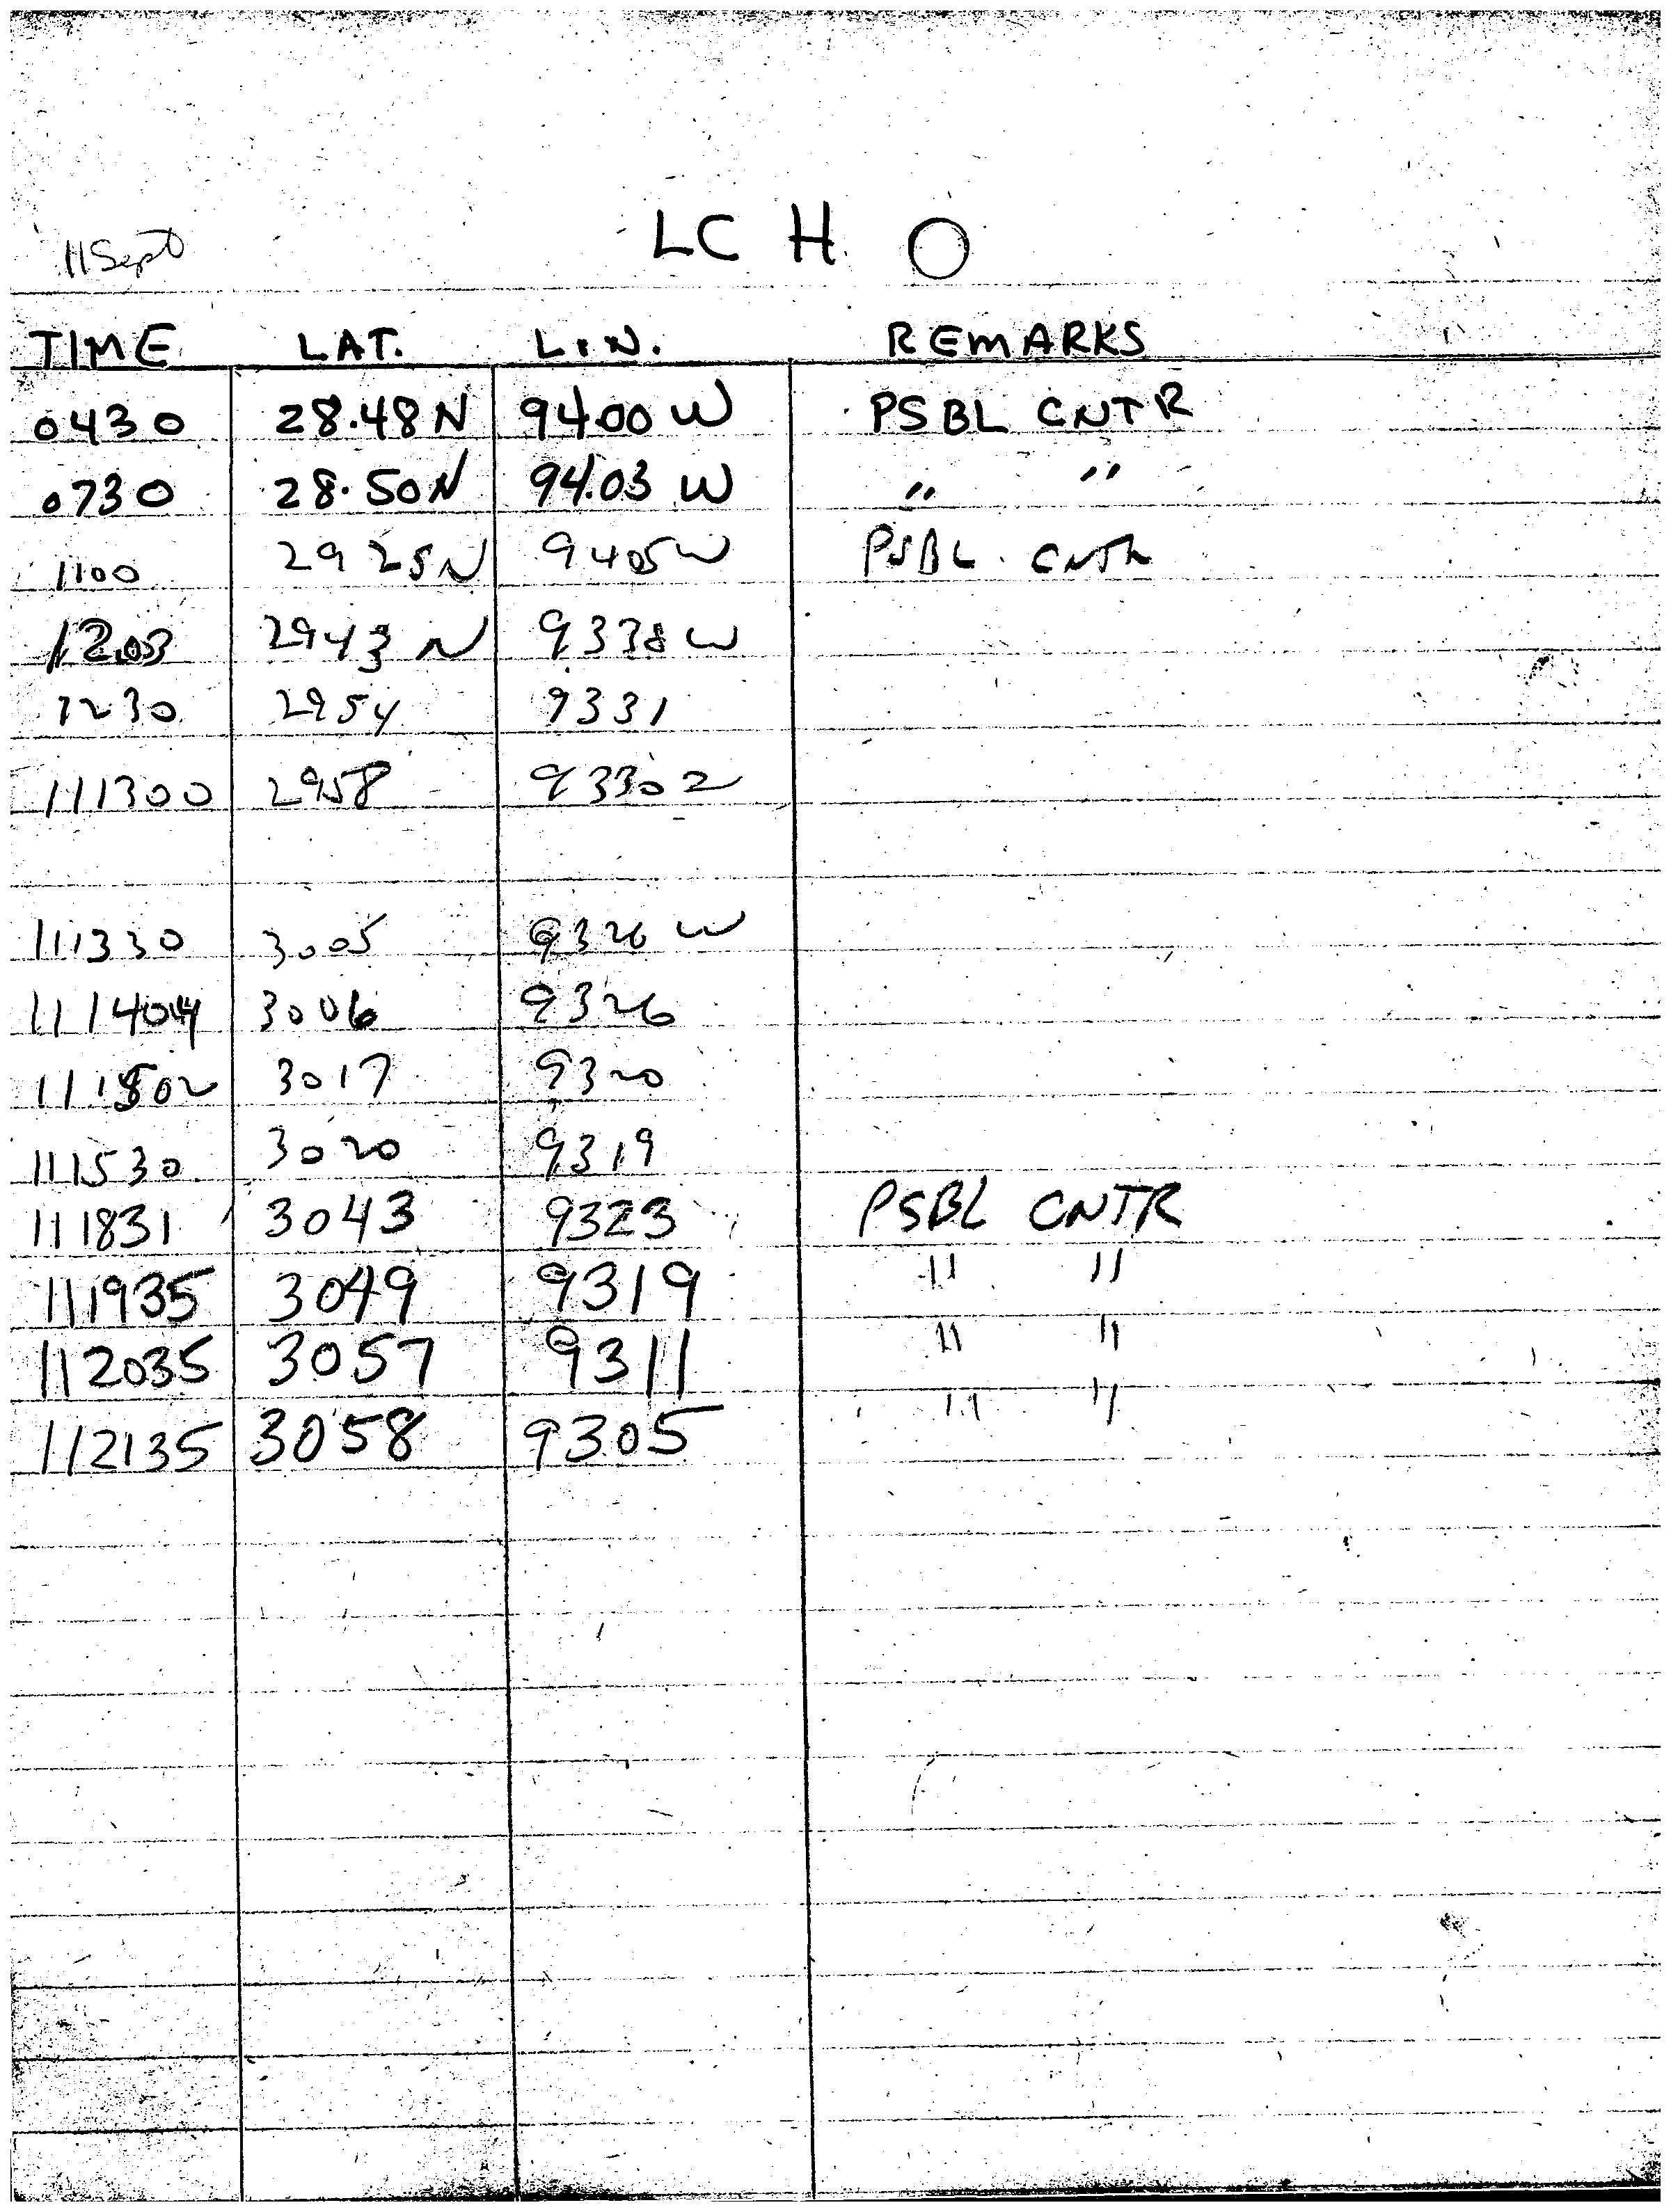 LCH O
11 Sept
TIME LAT. LON. REMARKS
0430 28.48N 94.00 W PSBL CNTR
0730 28.50N 94.03 W " "
1100 2925N 9405W PSBL CNTR
1203 2943 N 9338 W
1230 2954 9331
111300 2958 93302
111330 3005 9326 W
111404 3006 9326
111502 3017 9320
111530 3020 9319
111831 3043 9323 PSBL CNTR
111935 3049 9319 " "
112035 3057 9311 " "
112135 3058 9305 " "